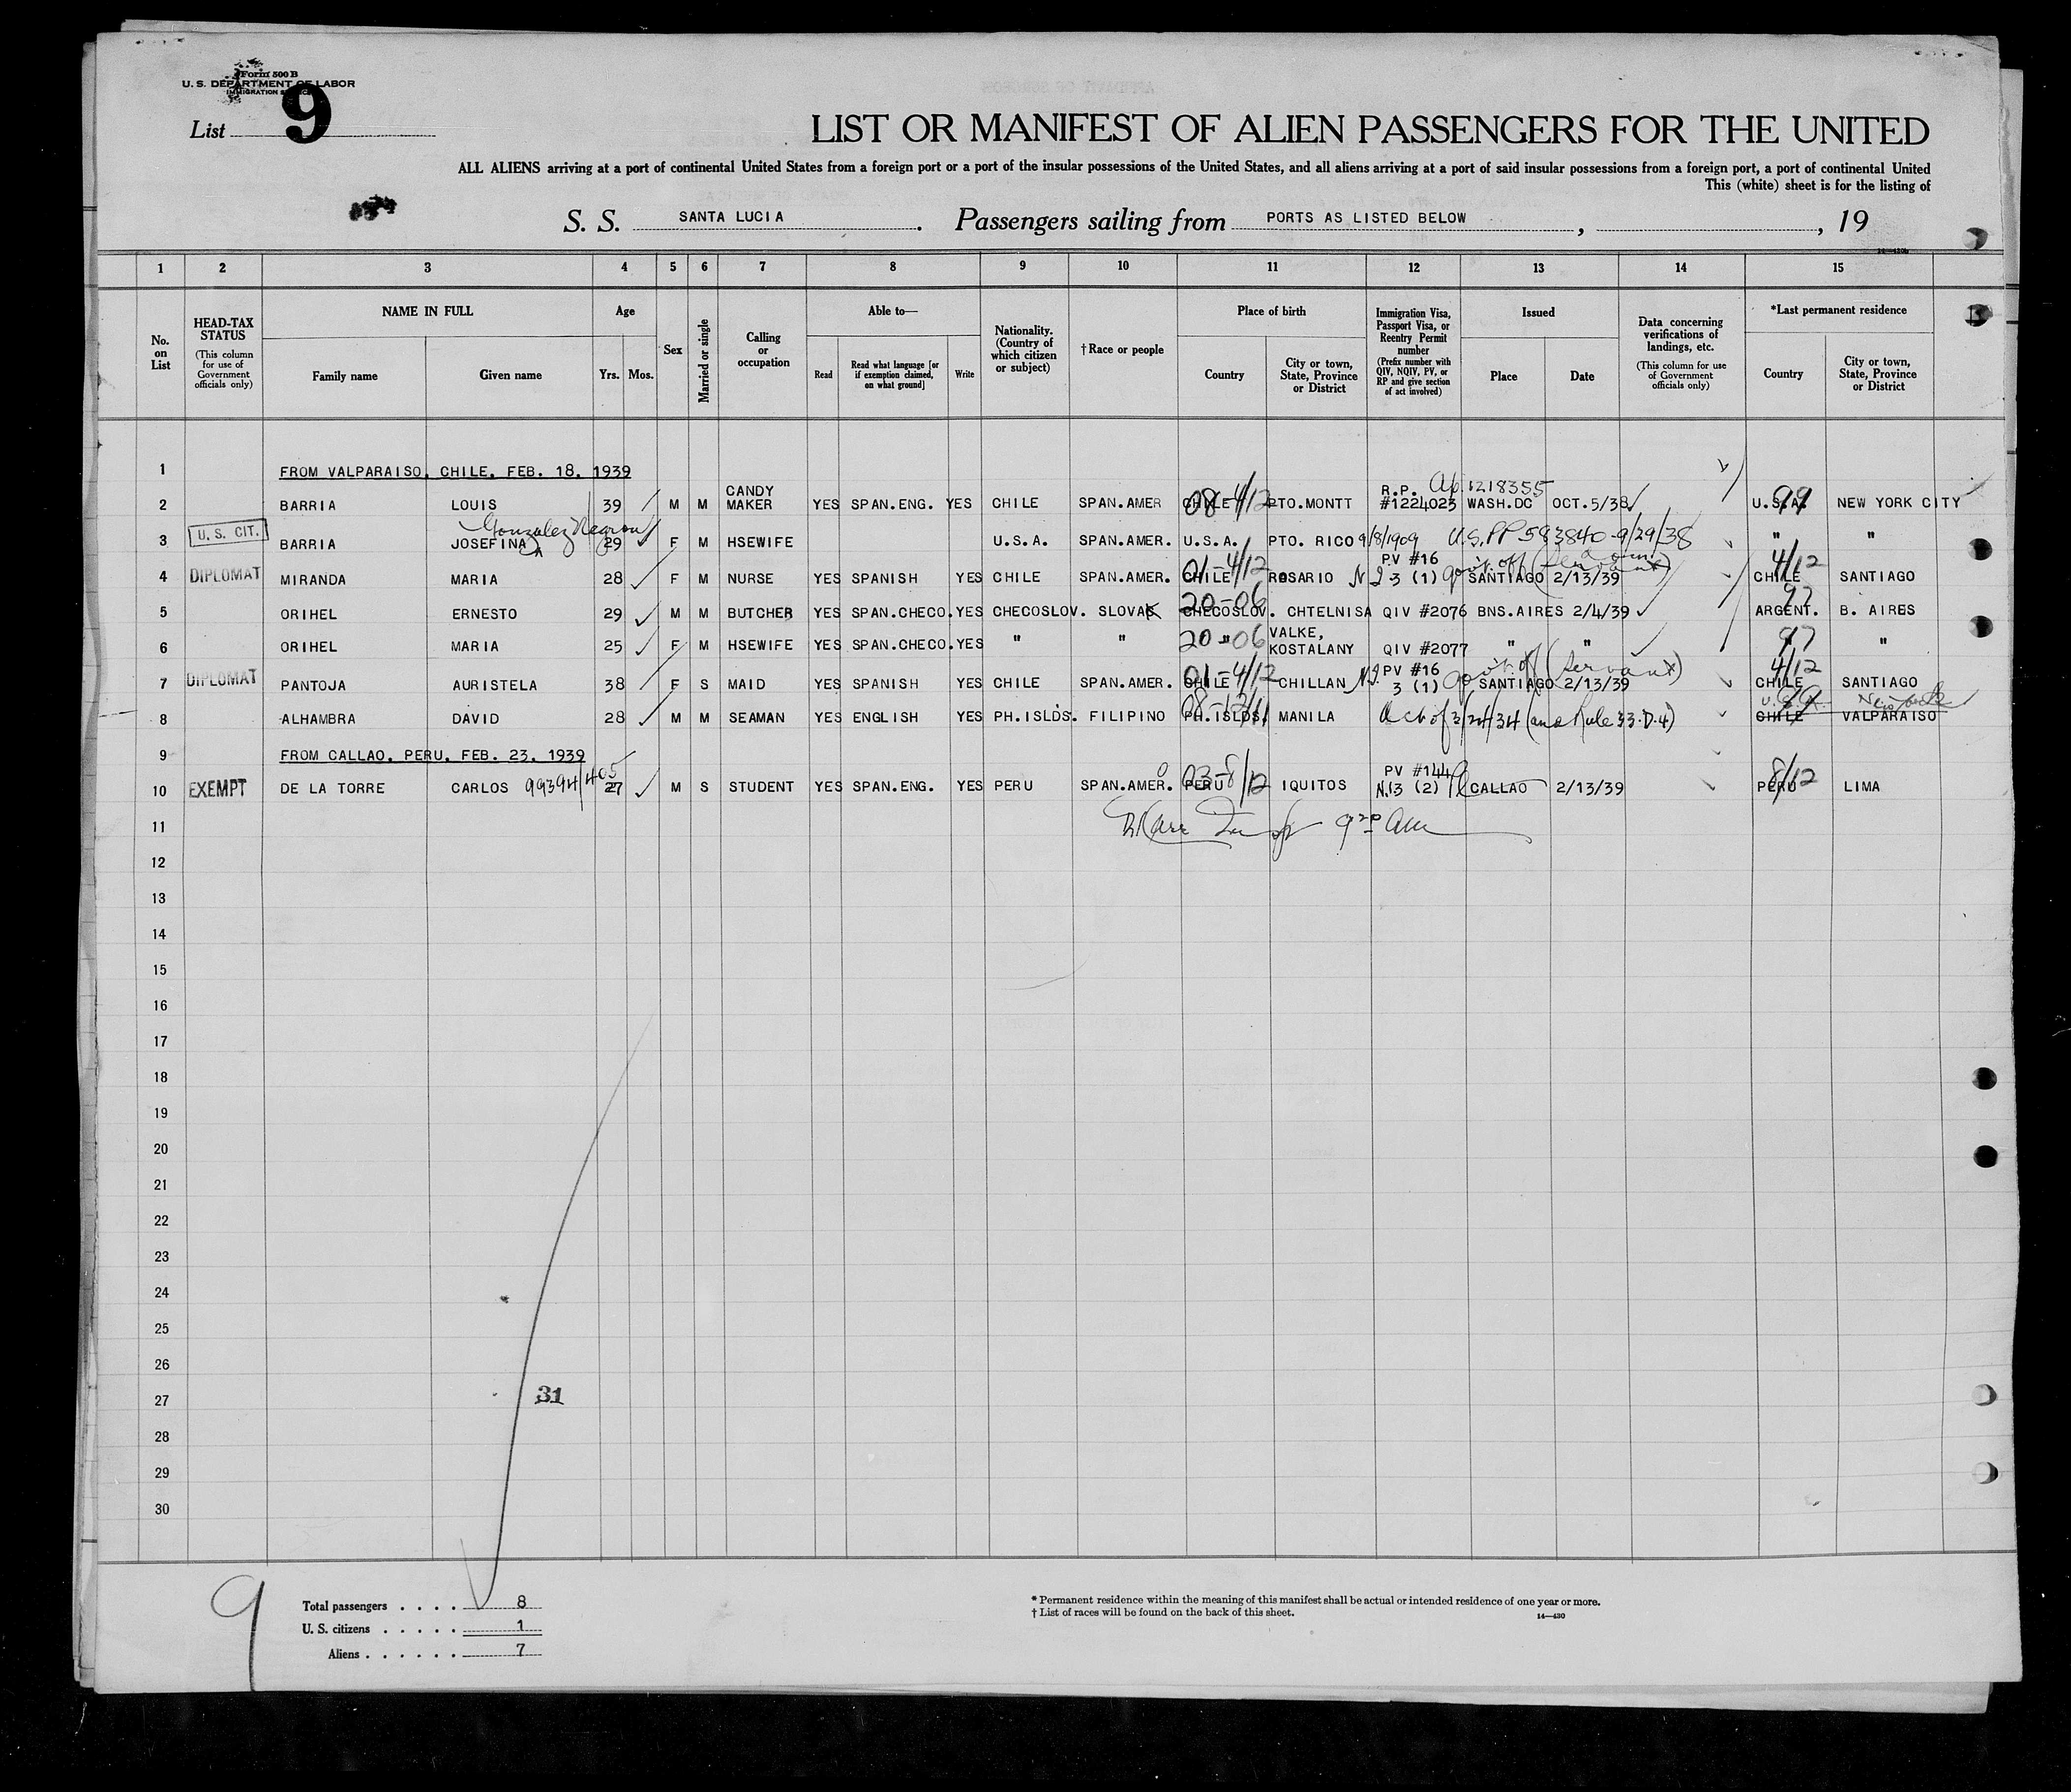 Form 500 B
U. S. DEPARTMENT OF LABOR
IMMIGRATION
List 9
LIST OR MANIFEST OF ALIEN PASSENGERS FOR THE UNITED
ALL ALIENS arriving at a port of continental United States from a foreign port or a port of the insular possessions of the United States, and all aliens arriving at a port of said insular possessions from a foreign port, a port of continental United
This (white) sheet is for the listing of
S. S. SANTA LUCIA. Passengers sailing from PORTS AS LISTED BELOW, , 19
1 2 3 4 5 6 7 8 9 10 11 12 13 14 15
No. on List
HEAD-TAX STATUS (This column for use of Government officials only)
NAME IN FULL
Family name Given name
Age
Yrs. Mos.
Sex
Married or single
Calling or occupation
Able to—
Read Read what language [or if exemption claimed, on what ground] Write
Nationality. (Country of which citizen or subject)
†Race or people
Place of birth
Country City or town, State, Province or District
Immigration Visa, Passport Visa, or Reentry Permit number (Prefix number with QIV, NQIV, PV, or RP and give section of act involved)
Issued
Place Date
Data concerning verifications of landings, etc. (This column for use of Government officials only)
*Last permanent residence
Country City or town, State, Province or District
1 FROM VALPARAISO, CHILE, FEB. 18, 1939
2 BARRIA LOUIS 39 M M CANDY MAKER YES SPAN.ENG. YES CHILE SPAN.AMER CHILE 08-4/12 PTO.MONTT R.P. #1224023 1218355 WASH.DC OCT.5/38 U.S.A. 99 NEW YORK CITY
3 U. S. CIT. BARRIA JOSEFINA Gonzalez Negron 29 F M HSEWIFE U.S.A. SPAN.AMER. U.S.A. PTO. RICO 9/8/1909 U.S. PP 583840-9/29/38 " "
4 DIPLOMAT MIRANDA MARIA 28 F M NURSE YES SPANISH YES CHILE SPAN.AMER. CHILE 01-4/12 ROSARIO PV #16 3 (1) Govt. off (servant) SANTIAGO 2/13/39 CHILE 4/12 SANTIAGO
5 ORIHEL ERNESTO 29 M M BUTCHER YES SPAN.CHECO. YES CHECOSLOV. SLOVAK CHECOSLOV. 20-06 CHTELNISA QIV #2076 BNS.AIRES 2/4/39 ARGENT. 97 B. AIRES
6 ORIHEL MARIA 25 F M HSEWIFE YES SPAN.CHECO. YES " " " 20-06 VALKE, KOSTALANY QIV #2077 " " " 97 "
7 DIPLOMAT PANTOJA AURISTELA 38 F S MAID YES SPANISH YES CHILE SPAN.AMER. CHILE 01-4/12 CHILLAN PV #16 3 (1) Govt. of (servant) SANTIAGO 2/13/39 CHILE 4/12 SANTIAGO
8 ALHAMBRA DAVID 28 M M SEAMAN YES ENGLISH YES PH.ISLDS. FILIPINO PH.ISLDS. MANILA Act of 3/24/34 (and Rule 33.D.4) CHILE VALPARAISO U.S.A. New York
9 FROM CALLAO, PERU, FEB. 23, 1939
10 EXEMPT DE LA TORRE CARLOS 99394/405 27 M S STUDENT YES SPAN.ENG. YES PERU SPAN.AMER. PERU 03-8/12 IQUITOS PV #144 3 (2) CALLAO 2/13/39 PERU 8/12 LIMA
11
12
13
14
15
16
17
18
19
20
21
22
23
24
25
26
27 31
28
29
30
9
Total passengers . . . . 8
U. S. citizens . . . . . 1
Aliens . . . . . . 7
* Permanent residence within the meaning of this manifest shall be actual or intended residence of one year or more.
† List of races will be found on the back of this sheet. 14—430